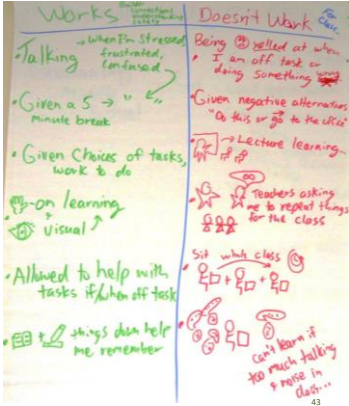 Works
Builds
connections
understanding
safety
Talking → when I'm stressed,
frustrated,
confused
Given a 5 → " "
minute break
Given Choices of tasks,
work to do
-on learning
visual
Allowed to help with
tasks if/when off task
+ things down help
me remember
Doesn't Work
For
Class
Being yelled at when
I am off task or
doing something wrong
Given negative alternatives
"Do this or go to the office"
→ Lecture learning...
Teachers asking
me to repeat things
for the class
Sit whole class
+ +
can't learn if
too much talking
& noise in
class...
43